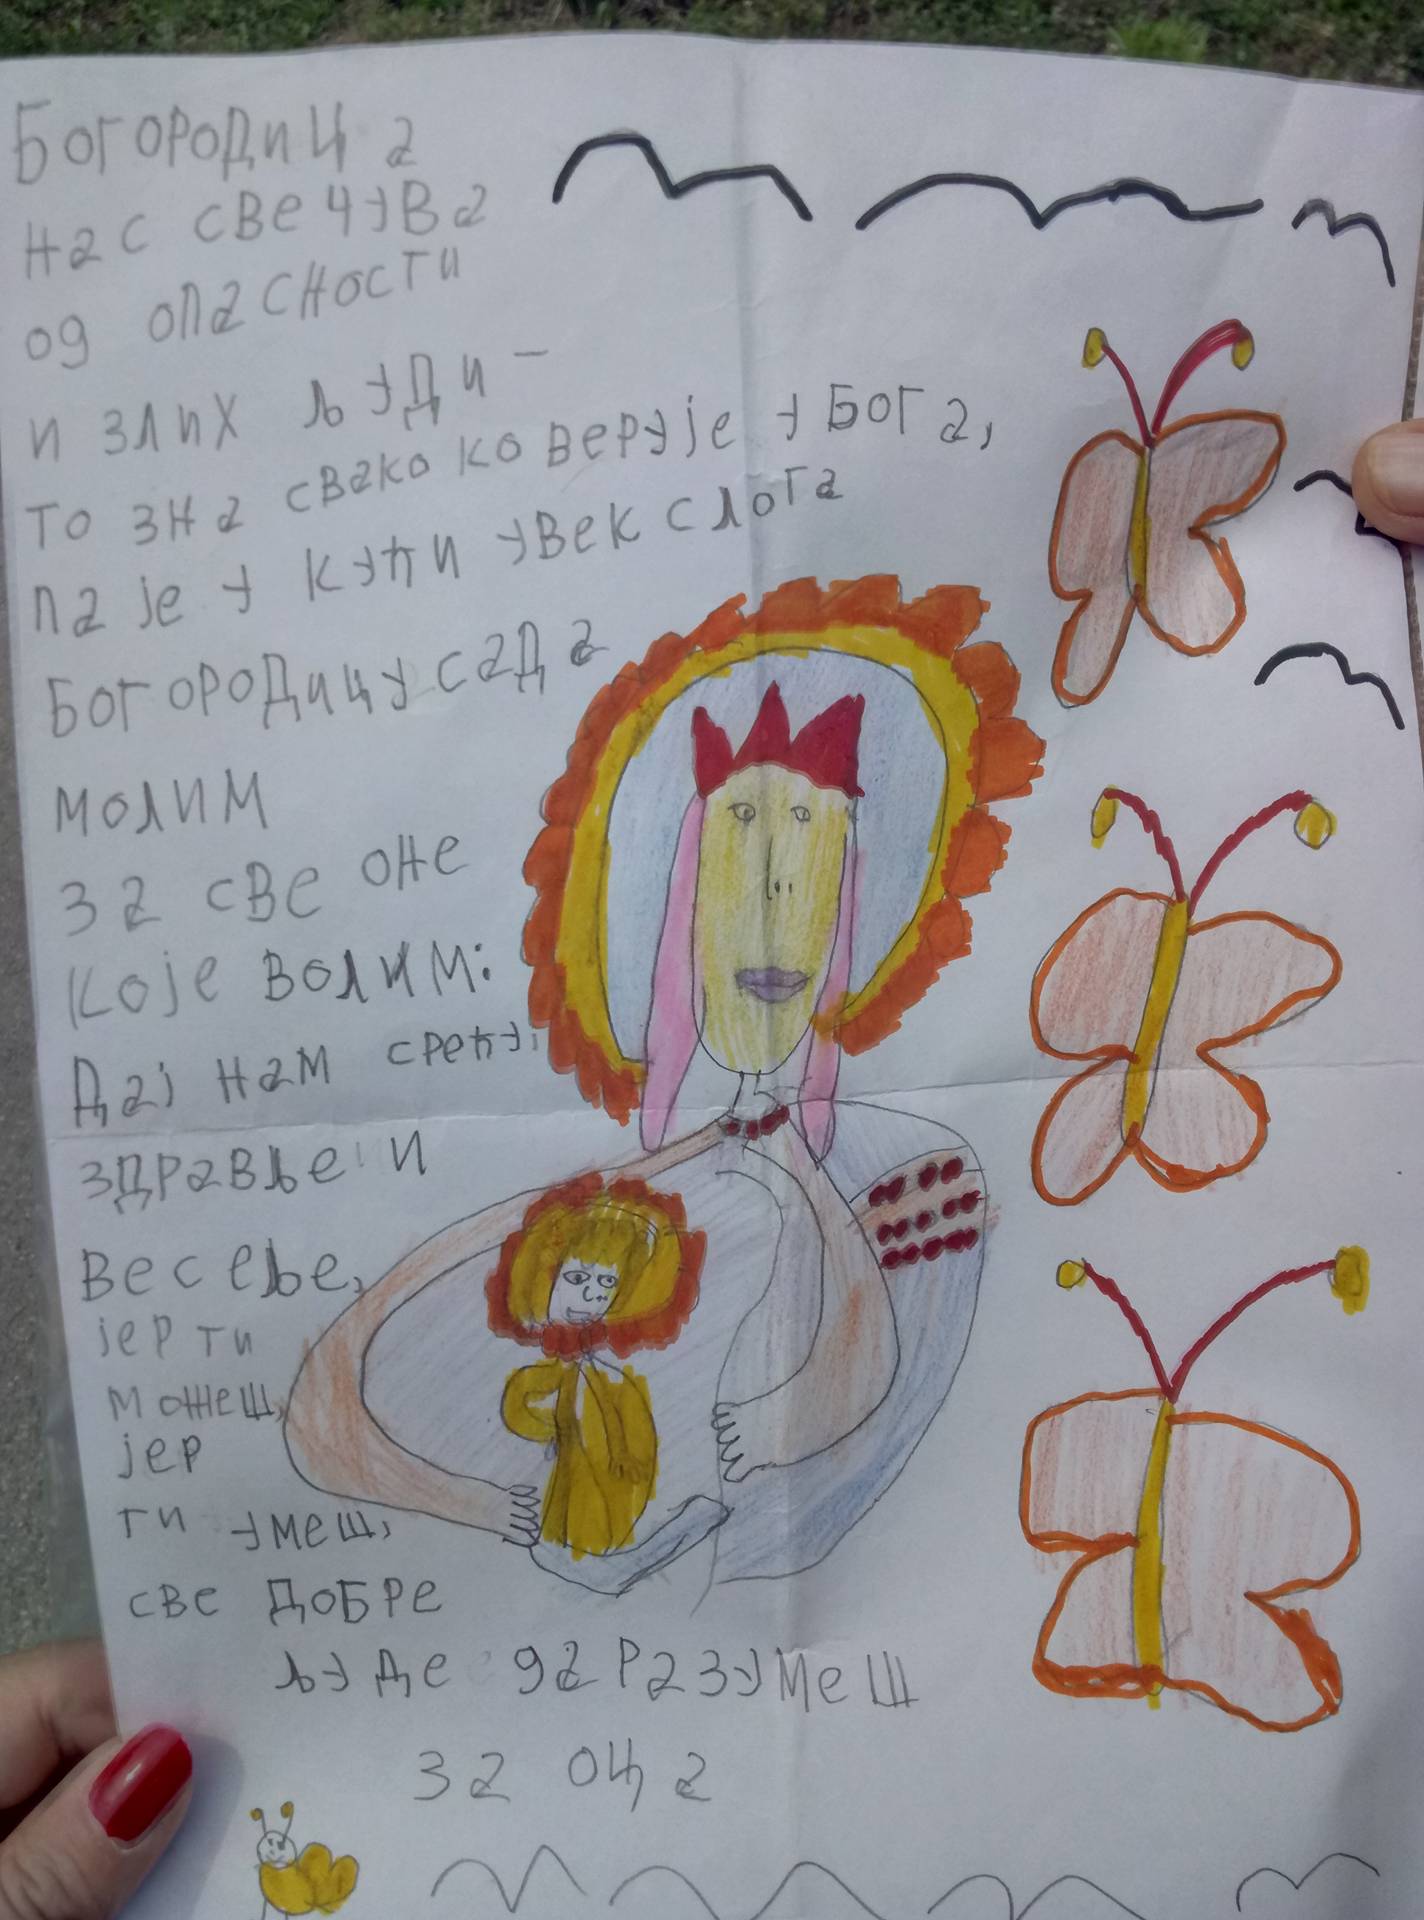 Богородица
нас све чува
од опасности
и злих људи -
то зна свако ко верује у Бога,
па је у кући увек слога
Богородицу сада
молим
за све оне
које волим:
Дај нам срећу,
здравље и
Весеље,
јер ти
можеш,
јер
ти умеш,
све добре
људе да разумеш
за оца